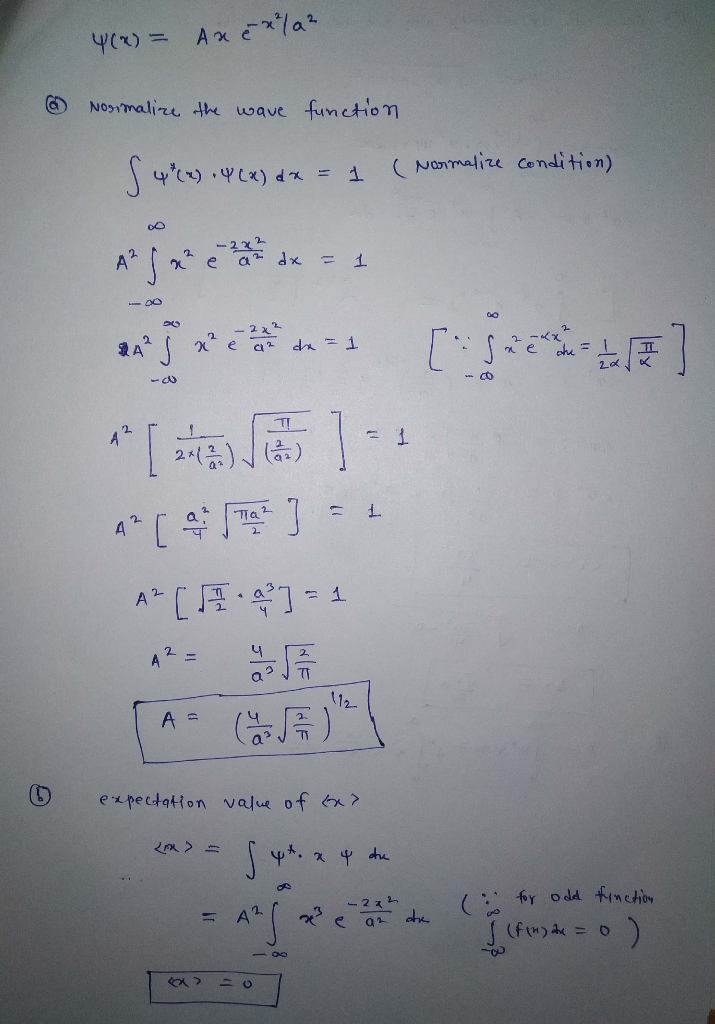 ψ(x) = A x e^{-x²/a²}
(a) Normalize the wave function
∫ ψ*(x) . ψ(x) dx = 1 ( Normalize condition)
A² ∫_{-∞}^{∞} x² e^{-2x²/a²} dx = 1
A² ∫_{-∞}^{∞} x² e^{-2x²/a²} dx = 1 [ ∵ ∫_{-∞}^{∞} x² e^{-αx²} dx = 1/2α √(π/α) ]
A² [ 1/(2×(2/a²)) √(π/(2/a²)) ] = 1
A² [ a²/4 √(πa²/2) ] = 1
A² [ √(π/2) · a³/4 ] = 1
A² = 4/a³ √(2/π)
A = (4/a³ √(2/π))^{1/2}
(b) expectation value of <x>
<x> = ∫ ψ*. x ψ dx
= A² ∫_{-∞}^{∞} x³ e^{-2x²/a²} dx ( ∵ for odd function
∫_{-∞}^{∞} (f(x) dx = 0 )
<x> = 0